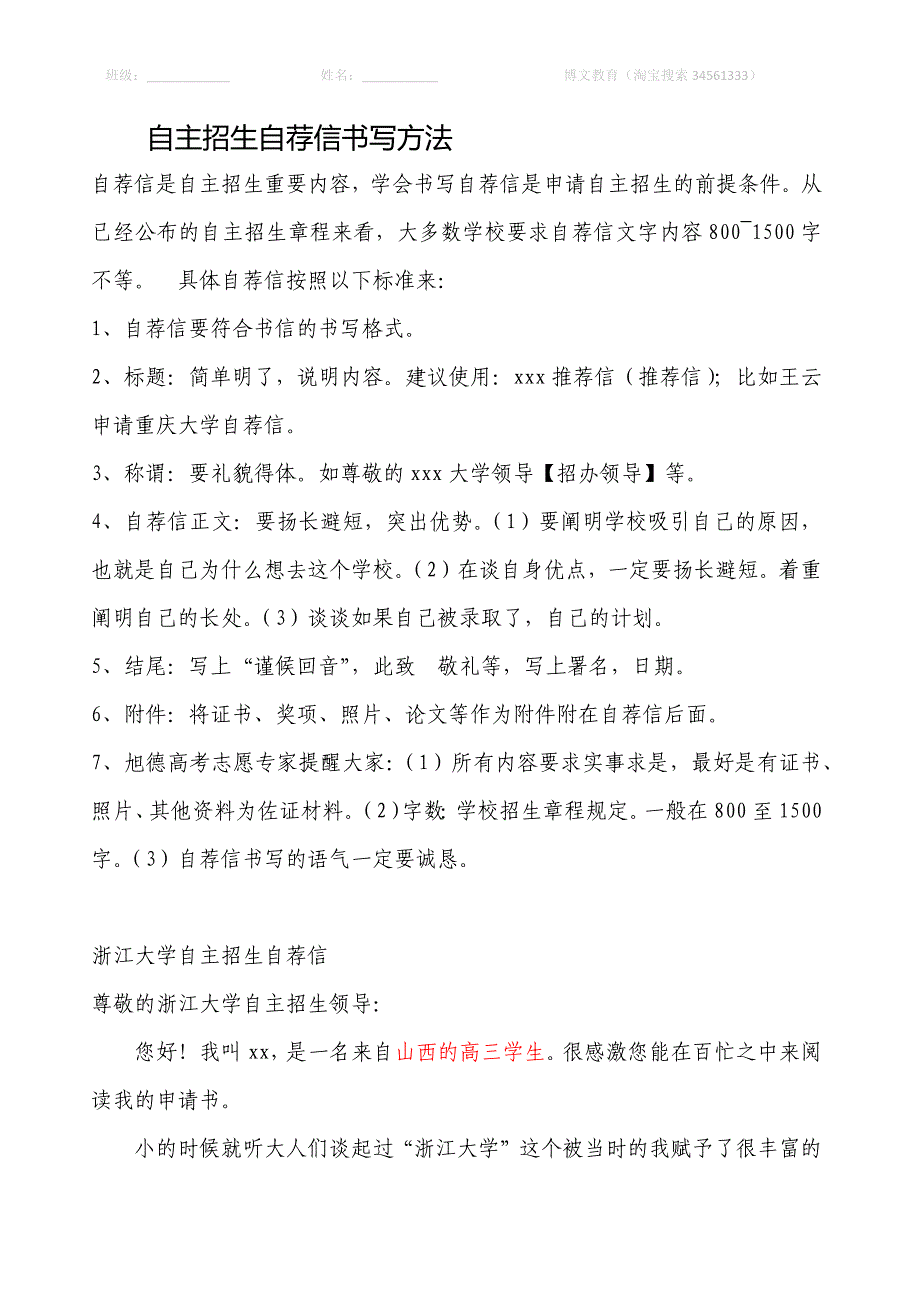 班级：____________ 姓名：___________ 博文教育（淘宝搜索 34561333）
自主招生自荐信书写方法
自荐信是自主招生重要内容，学会书写自荐信是申请自主招生的前提条件。从
已经公布的自主招生章程来看，大多数学校要求自荐信文字内容 800¯1500 字
不等。　具体自荐信按照以下标准来：
1、自荐信要符合书信的书写格式。
2、标题：简单明了，说明内容。建议使用：xxx 推荐信（推荐信）；比如王云
申请重庆大学自荐信。
3、称谓：要礼貌得体。如尊敬的 xxx 大学领导【招办领导】等。
4、自荐信正文：要扬长避短，突出优势。（1）要阐明学校吸引自己的原因，
也就是自己为什么想去这个学校。（2）在谈自身优点，一定要扬长避短。着重
阐明自己的长处。（3）谈谈如果自己被录取了，自己的计划。
5、结尾：写上“谨候回音”，此致　敬礼等，写上署名，日期。
6、附件：将证书、奖项、照片、论文等作为附件附在自荐信后面。
7、旭德高考志愿专家提醒大家：（1）所有内容要求实事求是，最好是有证书、
照片、其他资料为佐证材料。（2）字数：学校招生章程规定。一般在 800 至 1500
字。（3）自荐信书写的语气一定要诚恳。
浙江大学自主招生自荐信
尊敬的浙江大学自主招生领导：
您好！我叫 xx，是一名来自山西的高三学生。很感激您能在百忙之中来阅
读我的申请书。
小的时候就听大人们谈起过“浙江大学”这个被当时的我赋予了很丰富的